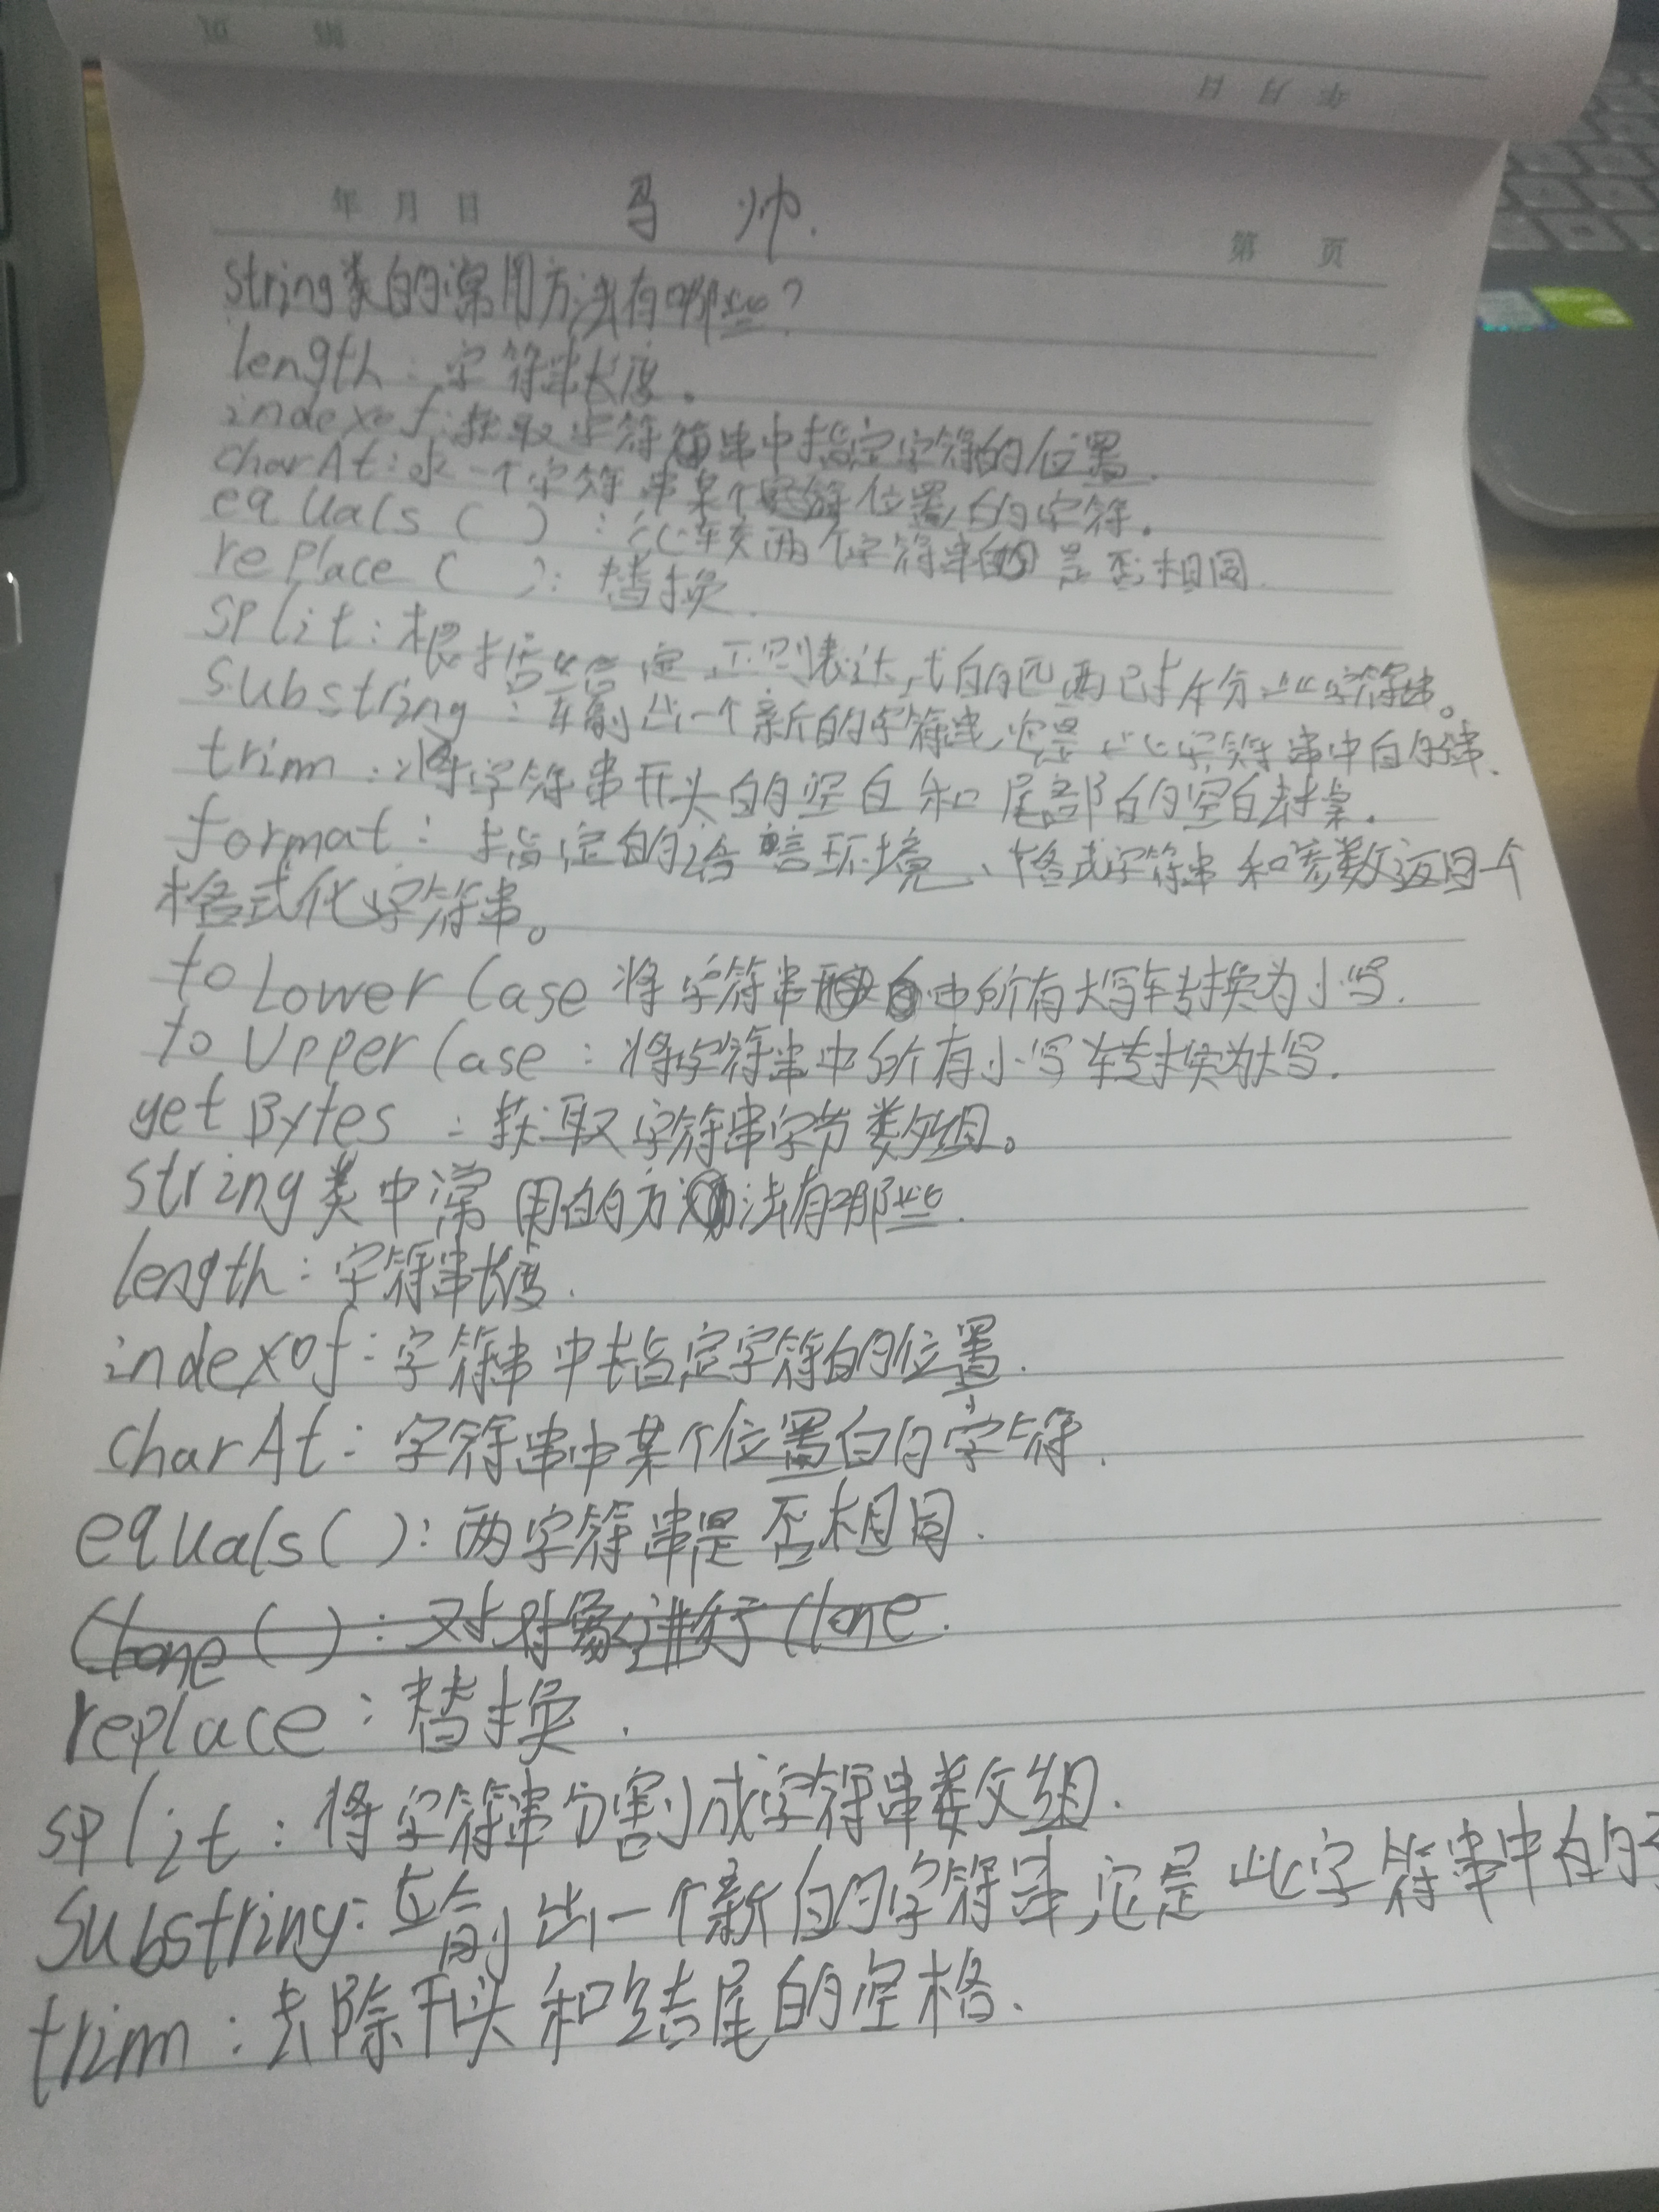 年 月 日
年 月 日 马 帅.
第 页
String类的常用方法有哪些?
length: 字符串长度。
indexof: 获取字符串中指定字符的位置.
charAt: 求一个字符串某个位置的字符。
equals ( ) : 比较两个字符串是否相同.
replace ( ): 替换.
split: 根据给定正则表达式的匹配拆分此字符串。
substring: 输出一个新的字符串,它是此字符串中的
trim: 将字符串开头的空白和尾部的空白去掉.
format: 指定的语言环境、格式字符串和参数返回一个
格式化字符串。
to Lower Case 将字符串中所有大写转换为小写.
to Upper Case: 将字符串中所有小写转换为大写.
get Bytes : 获取字符串字节数组。
string类中常用的方法有哪些.
length: 字符串长度.
indexof: 字符串中指定字符的位置.
charAt: 字符串中某个位置的字符.
equals( ): 两字符串是否相同.
Clone ( ): 对对象进行Clone.
replace: 替换.
split: 将字符串分割成字符串数组.
Substring: 输出一个新的字符串,它是此字符串中的
trim: 去除开头和结尾的空格.